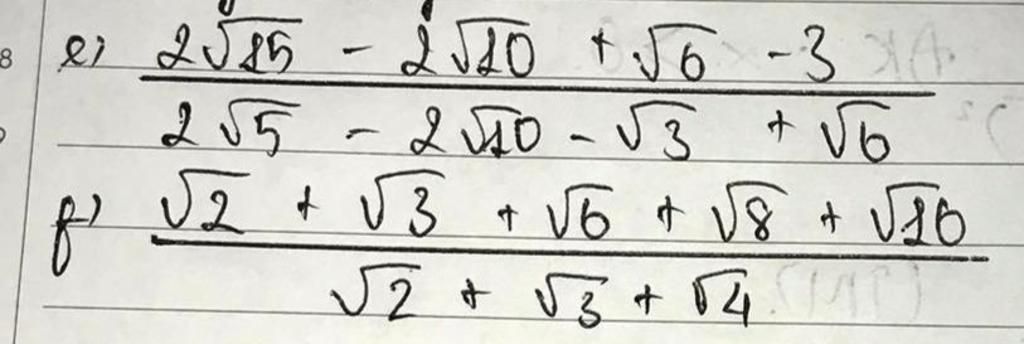 e) (2√15 - 2√10 + √6 - 3) / (2√5 - 2√10 - √3 + √6)
f) (√2 + √3 + √6 + √8 + √16) / (√2 + √3 + √4)